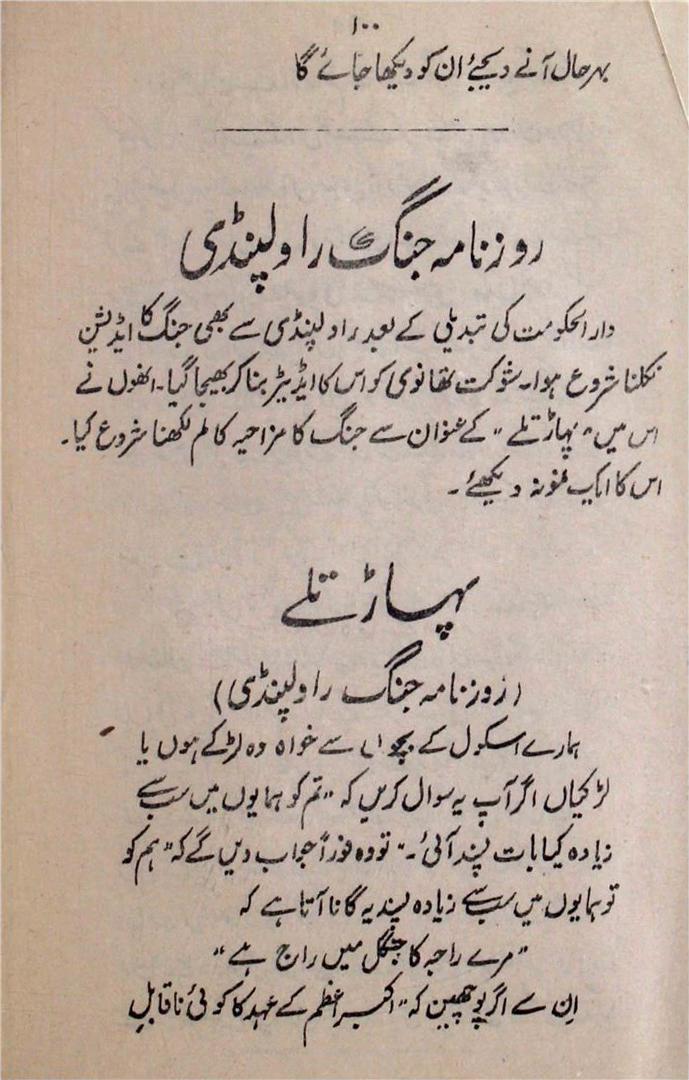 ۱۰۰
بہرحال آنے دیجئے ان کو دیکھا جائے گا
روزنامہ جنگ راولپنڈی
دارالحکومت کی تبدیلی کے بعد راولپنڈی سے بھی جنگ کا ایڈیشن
نکلنا شروع ہوا۔ شوکت تھانوی کو اس کا ایڈیٹر بنا کر بھیجا گیا۔ انھوں نے
اس میں "پہاڑ تلے" کے عنوان سے جنگ کا مزاحیہ کالم لکھنا شروع کیا۔
اس کا ایک نمونہ دیکھئے۔
پہاڑ تلے
(روزنامہ جنگ راولپنڈی)
ہمارے اسکول کے بچوں سے خواہ وہ لڑکے ہوں یا
لڑکیاں اگر آپ یہ سوال کریں کہ "تم کو ہمایوں میں سب سے
زیادہ کیا بات پسند آئی۔" تو وہ فوراً جواب دیں گے کہ "ہم کو
تو ہمایوں میں سب سے زیادہ پسند یہ گانا آتا ہے کہ
"مرے راجہ کا جنگل میں راج ہے"
ان سے اگر پوچھیں کہ "اکبر اعظم کے عہد کا کوئی ناقابلِ